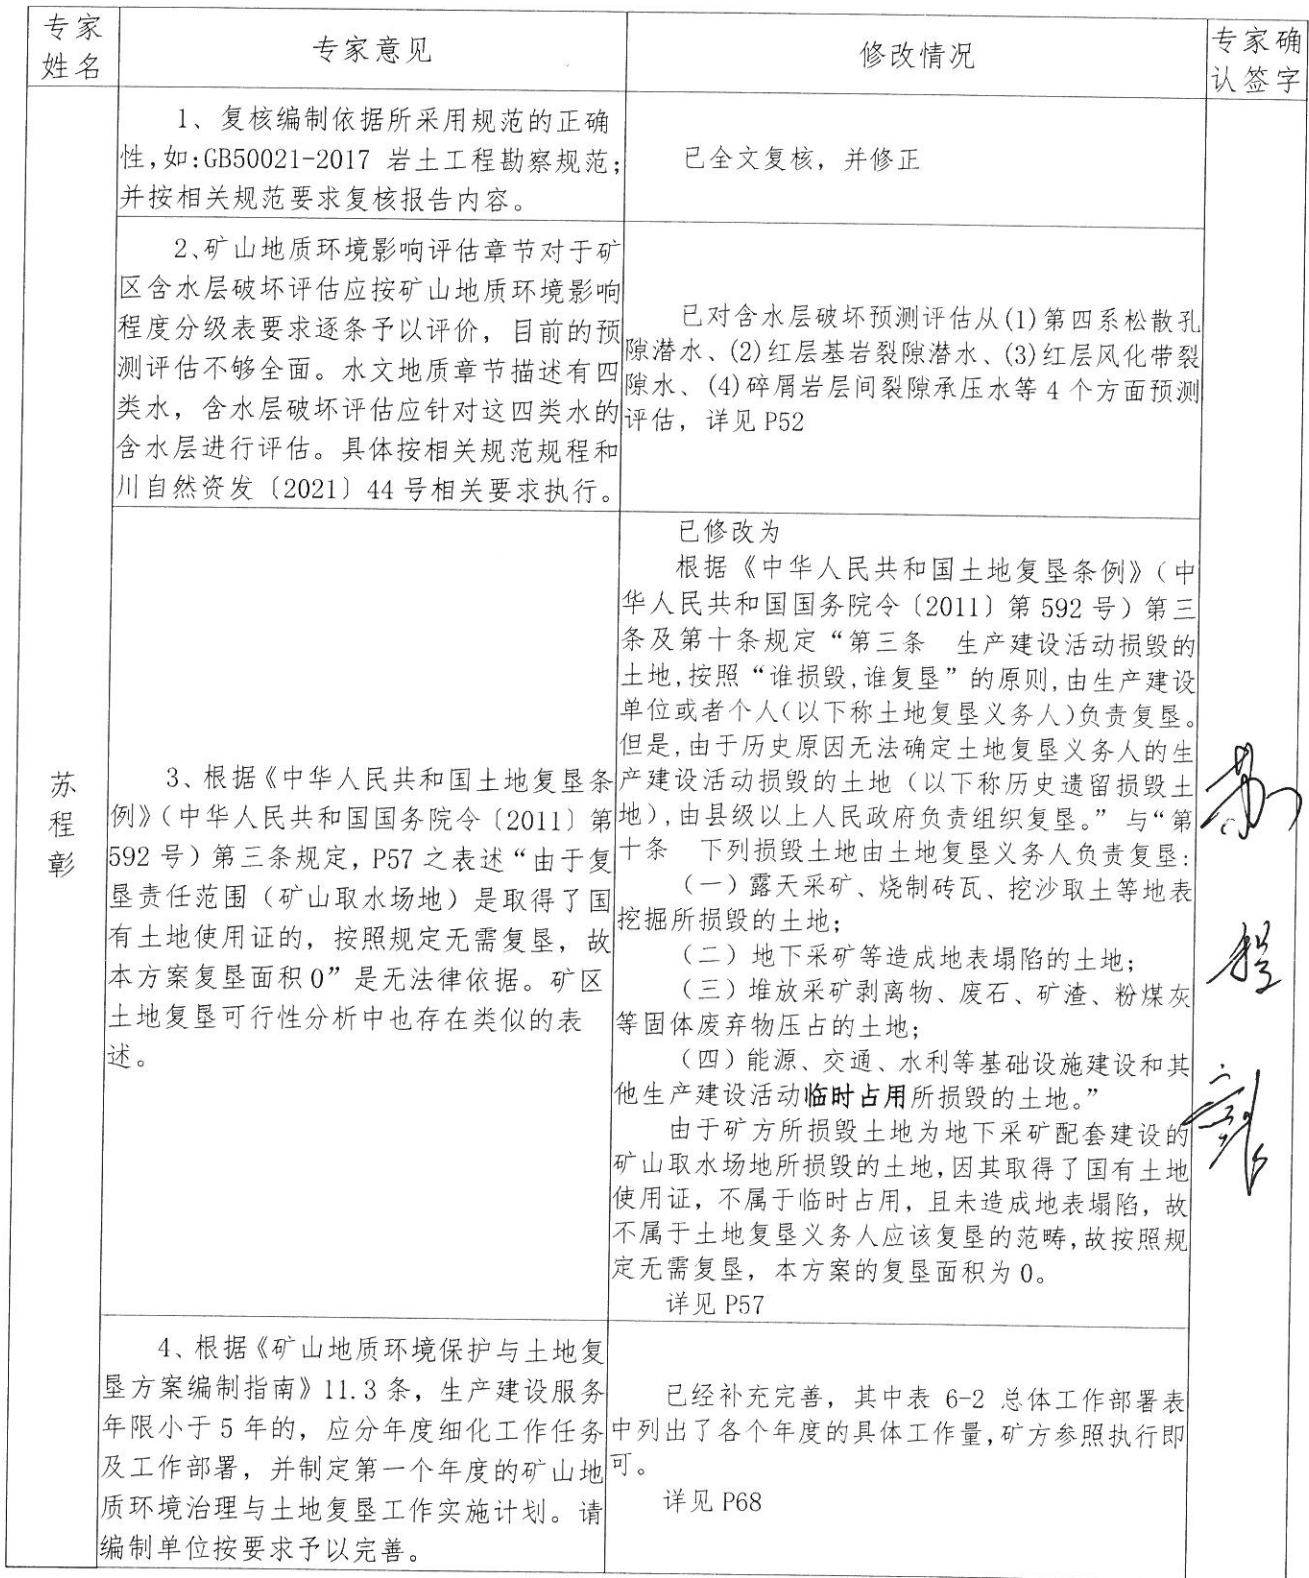 专家姓名
专家意见
修改情况
专家确认签字
苏程彰
1、复核编制依据所采用规范的正确
性,如:GB50021-2017 岩土工程勘察规范;
并按相关规范要求复核报告内容。
已全文复核，并修正
2、矿山地质环境影响评估章节对于矿
区含水层破坏评估应按矿山地质环境影响
程度分级表要求逐条予以评价，目前的预
测评估不够全面。水文地质章节描述有四
类水，含水层破坏评估应针对这四类水的
含水层进行评估。具体按相关规范规程和
川自然资发〔2021〕44号相关要求执行。
已对含水层破坏预测评估从(1)第四系松散孔
隙潜水、(2)红层基岩裂隙潜水、(3)红层风化带裂
隙水、(4)碎屑岩层间裂隙承压水等4个方面预测
评估，详见P52
3、根据《中华人民共和国土地复垦条
例》（中华人民共和国国务院令〔2011〕第
592号）第三条规定，P57之表述“由于复
垦责任范围（矿山取水场地）是取得了国
有土地使用证的，按照规定无需复垦，故
本方案复垦面积0”是无法律依据。矿区
土地复垦可行性分析中也存在类似的表
述。
已修改为
根据《中华人民共和国土地复垦条例》（中
华人民共和国国务院令〔2011〕第592号）第三
条及第十条规定“第三条　生产建设活动损毁的
土地,按照“谁损毁,谁复垦”的原则,由生产建设
单位或者个人(以下称土地复垦义务人)负责复垦。
但是,由于历史原因无法确定土地复垦义务人的生
产建设活动损毁的土地（以下称历史遗留损毁土
地）,由县级以上人民政府负责组织复垦。”与“第
十条　下列损毁土地由土地复垦义务人负责复垦:
（一）露天采矿、烧制砖瓦、挖沙取土等地表
挖掘所损毁的土地;
（二）地下采矿等造成地表塌陷的土地;
（三）堆放采矿剥离物、废石、矿渣、粉煤灰
等固体废弃物压占的土地;
（四）能源、交通、水利等基础设施建设和其
他生产建设活动临时占用所损毁的土地。”
由于矿方所损毁土地为地下采矿配套建设的
矿山取水场地所损毁的土地,因其取得了国有土地
使用证，不属于临时占用，且未造成地表塌陷，故
不属于土地复垦义务人应该复垦的范畴,故按照规
定无需复垦，本方案的复垦面积为0。
详见P57
4、根据《矿山地质环境保护与土地复
垦方案编制指南》11.3条，生产建设服务
年限小于5年的，应分年度细化工作任务
及工作部署，并制定第一个年度的矿山地
质环境治理与土地复垦工作实施计划。请
编制单位按要求予以完善。
已经补充完善，其中表 6-2 总体工作部署表
中列出了各个年度的具体工作量,矿方参照执行即
可。
详见P68
苏
程
彰